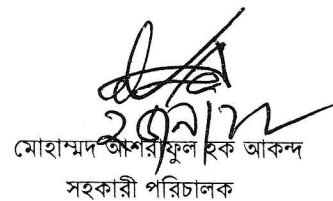 মোহাম্মদ আশরাফুল হক আকন্দ
সহকারী পরিচালক